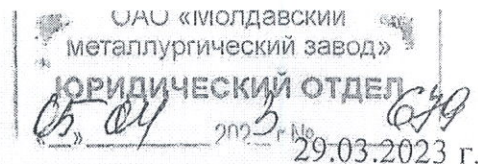 ОАО «Молдавский
металлургический завод»
ЮРИДИЧЕСКИЙ ОТДЕЛ
«05» 04 2023 г № 679
29.03.2023 г.